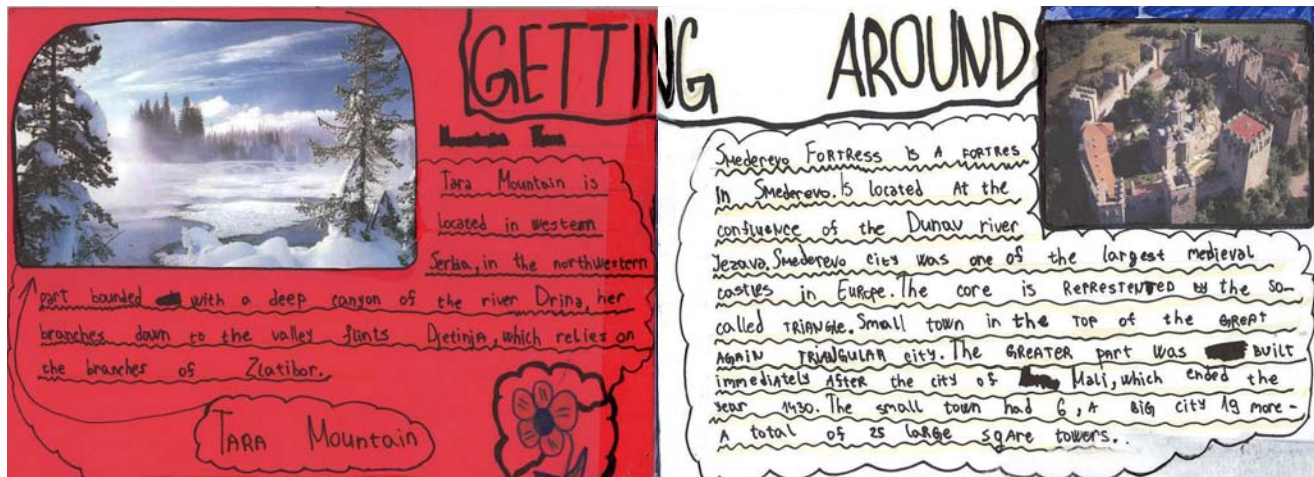 GETTING AROUND
Tara Mountain is
located in western
Serbia, in the northwestern
part bounded with a deep canyon of the river Drina, her
branches down to the valley flints Djetinja, which relies on
the branches of Zlatibor.
TARA Mountain
SMederevo FORTRESS IS A FORTRES
In SMederevo. Is located At the
confluence of the Dunav river
Jezava. SMederevo city was one of the largest medieval
castles in EUROPE. The core is REPRESTENTED by the so-
called TRIANGLE. Small town in the TOP of the GREAT
AGAIN TRIANGULAR city. The GREATER part was BUILT
immediately AFTER the city of Mali, which ended the
year 1430. The small town had 6, A BIG city 19 more -
A total of 25 large sqare towers..